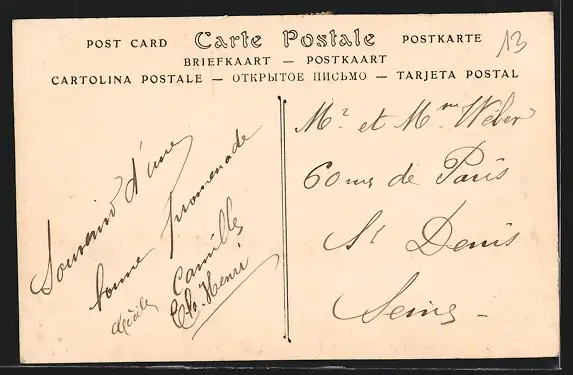 13
POST CARD Carte Postale POSTKARTE
BRIEFKAART — POSTKAART
CARTOLINA POSTALE — ОТКРЫТОЕ ПИСЬМО — TARJETA POSTAL
Souvenir d'une
bonne promenade
Cécile Camille
Henri
Mr et Mme Wéber
60 rue de Paris
St Denis
Seine